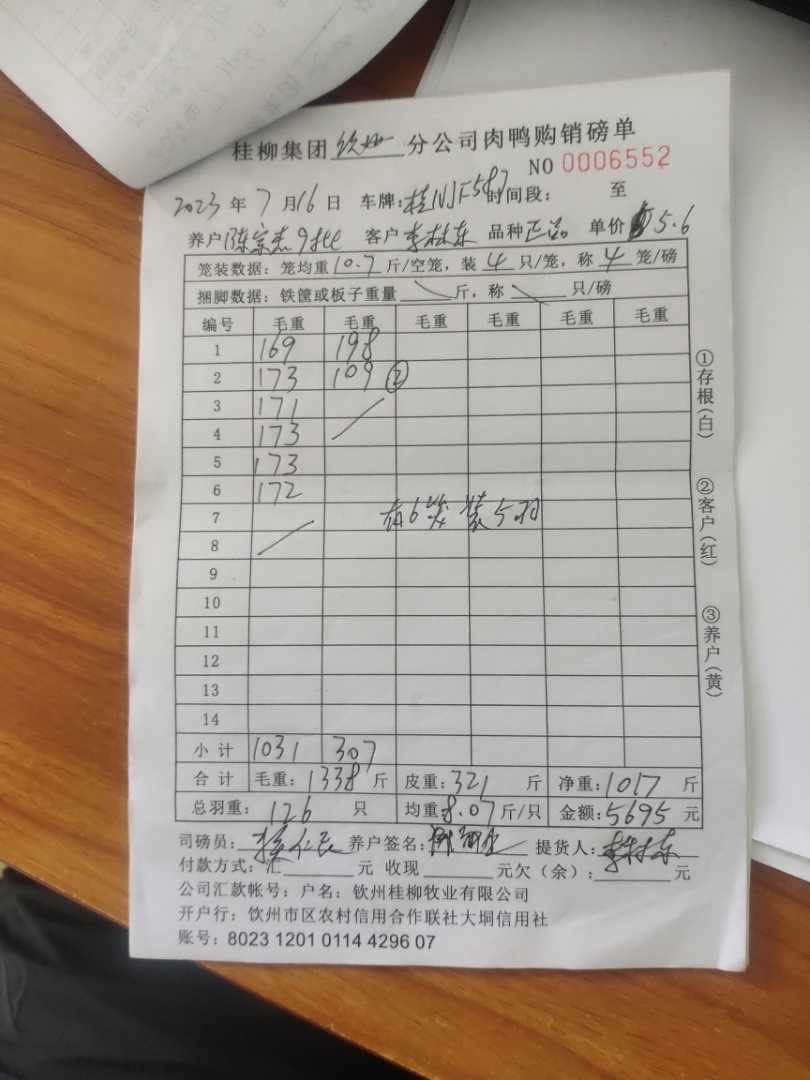 桂柳集团钦州分公司肉鸭购销磅单
NO 0006552
2023年7月16日 车牌:桂NJF587 时间段: 至
养户陈宗志9批 客户李林东 品种正品 单价5.6
笼装数据:笼均重10.7斤/空笼,装4只/笼,称4笼/磅
捆脚数据:铁筐或板子重量 斤,称 只/磅
编号 毛重 毛重 毛重 毛重 毛重 毛重
1 169 198
2 173 109 ②
3 171
4 173
5 173
6 172
7 有6笼装5羽
8
9
10
11
12
13
14
小计 1031 307
合计 毛重:1338斤 皮重:321斤 净重:1017斤
总羽重:126只 均重:8.07斤/只 金额:5695元
司磅员: 养户签名: 提货人:李林东
付款方式:汇 元 收现 元欠(余): 元
公司汇款帐号:户名:钦州桂柳牧业有限公司
开户行:钦州市区农村信用合作联社大垌信用社
账号:8023 1201 0114 4296 07
①存根(白)
②客户(红)
③养户(黄)